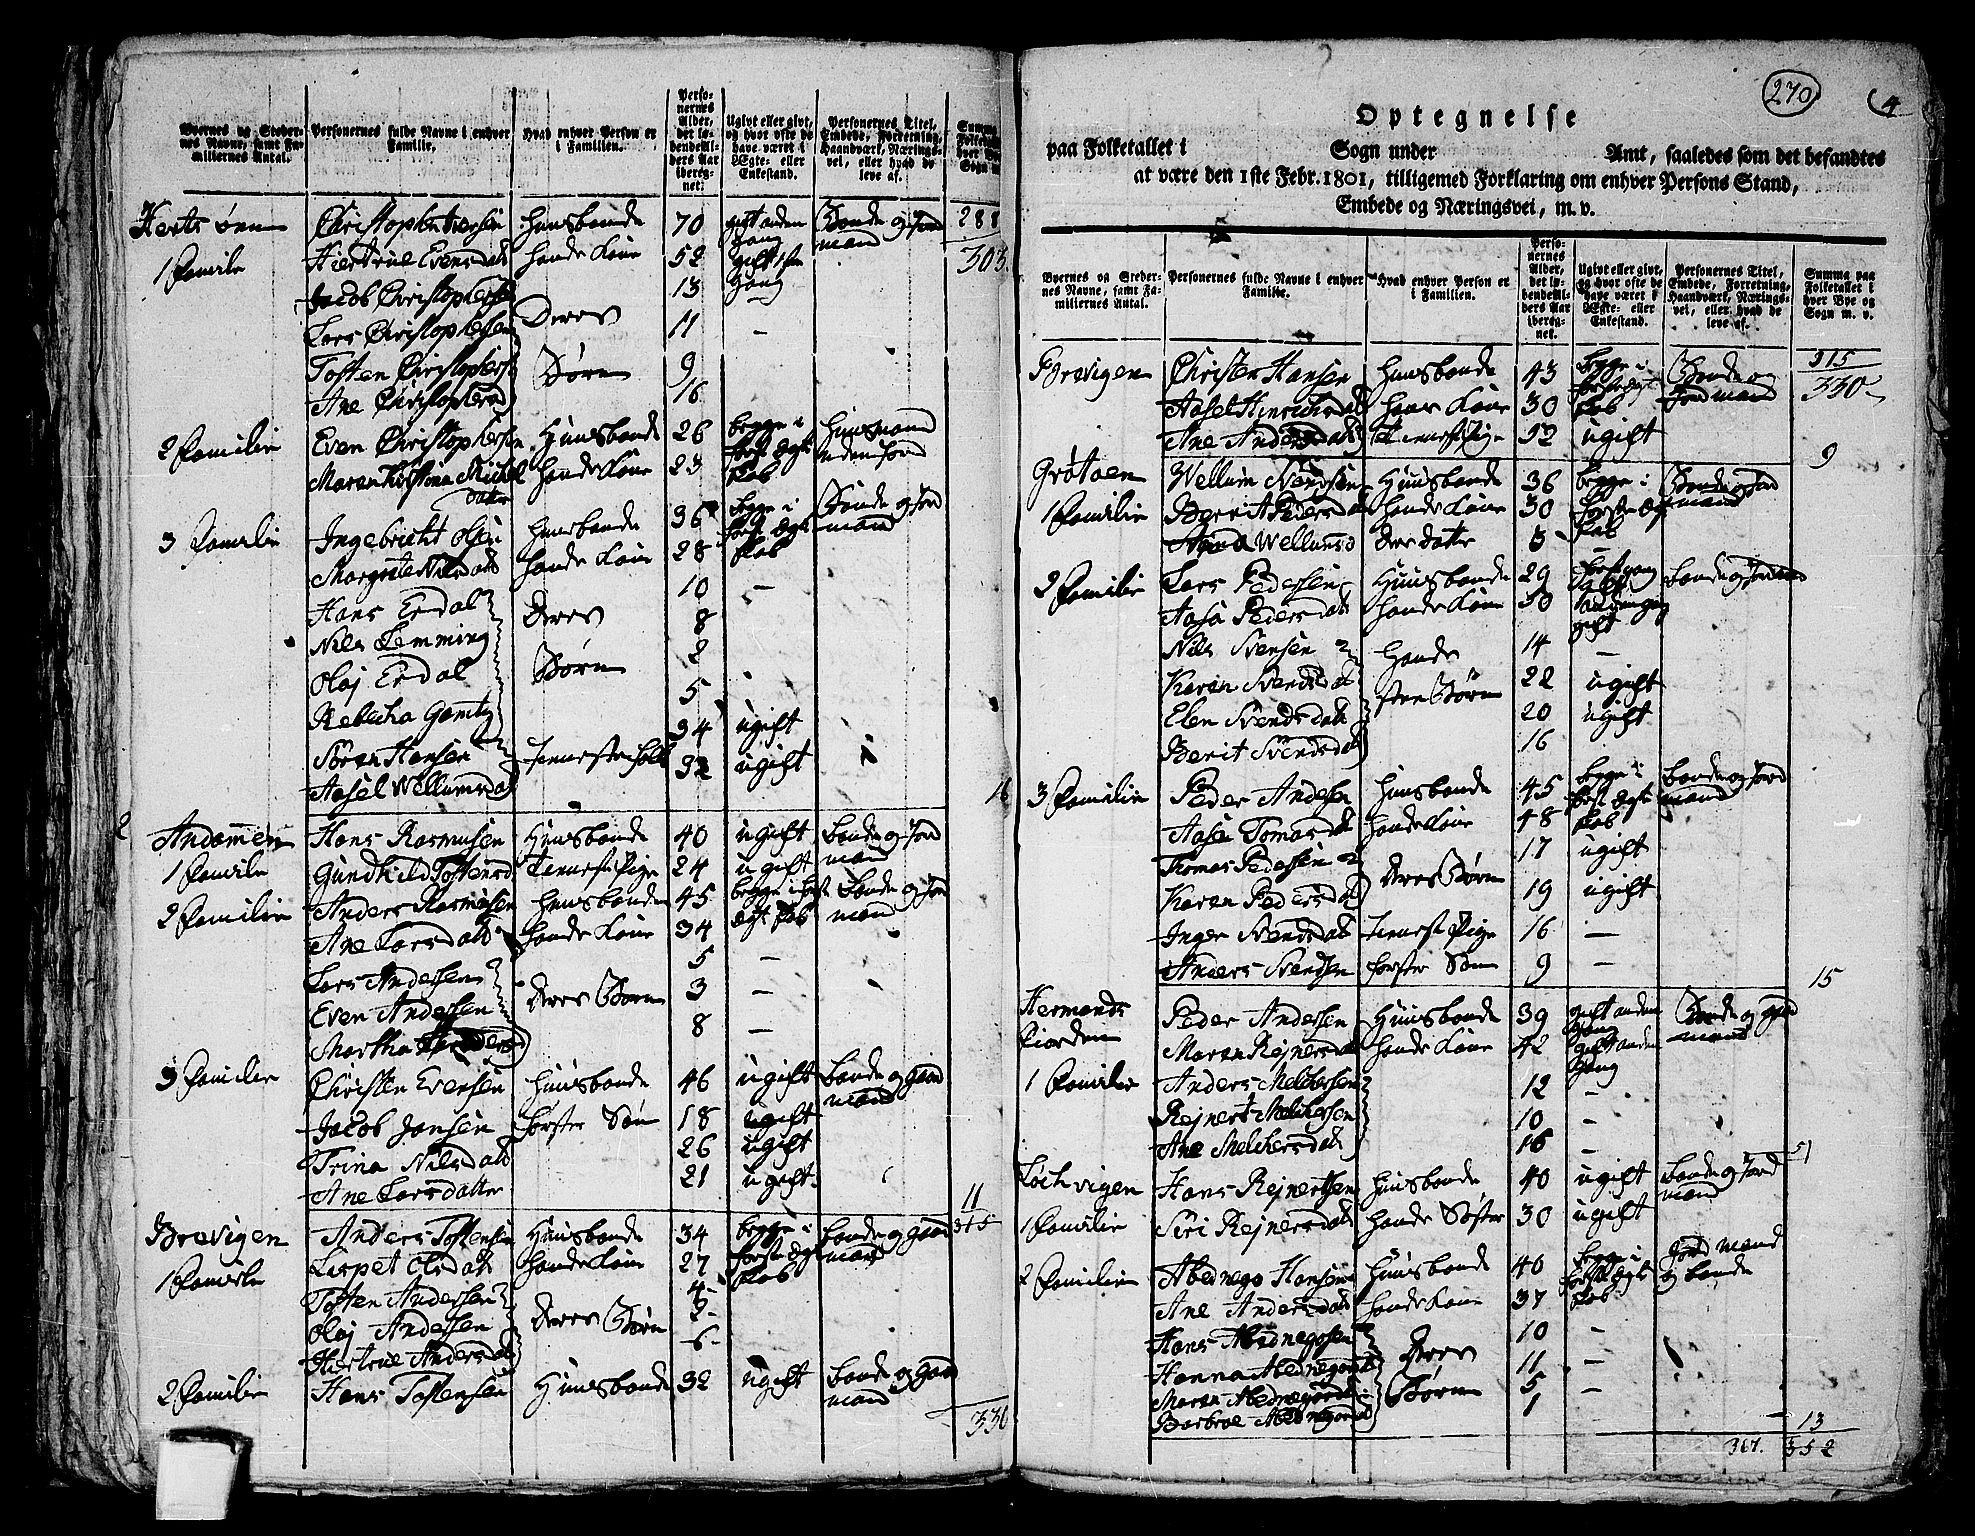 Byernes og Steder-
nes Navne, samt Fa-
miliernes Antal.
Personernes fulde Navne i enhver
Familie.
Hvad enhver Person er
i Familien.
Perso-
nernes
Alder,
det lø-
bendeAl-
ders Aar
ibereg-
net.
Ugivt eller givt,
og hvor ofte de
have været i
Ægte- eller
Enkestand.
Personernes Titel,
Embede, Forretning,
Haandværk, Nærings-
vei, eller hvad de
leve af.
Summa
Christophersen Huusbonde 70 gift anden Gang Bonde og Jord mand 288
1 Familie Hiertrue Evensdatt hands Kone 52 gift 1ste Gang 303
Jacob Christophersen 13
Lars Christophersen Deres 11 —
Tosten Christophersen Børn 9
Ane Christophersd 16
2 Familie Even Christophersen Huusbonde 26 begge i første Ægteskab Huusmand uden Jord
Maren Kistina Mickel datter hands Kone 23
3 Familie Ingebricht Olsen Huusbonde 36 begge i første Ægteskab Bonde og Jord mand
Margrete Nilsdatt hands Kone 28
Hans Erdal 10 —
Nils Lemming Deres 8
Oluf Erdal Børn 2
Rebecka 5
Søren Hansen Tieneste folk 34 ugift
Aasel Wellumsda 32 ugift
16
Hans Rasmusen Huusbonde 40 ugift Bonde og Jord mand
1 Familie Gundhild Tostensd Tieneste Pige 24 ugift
2 Familie Anders Rasmusen Huusbonde 45 begge i først Ægteskab Bonde og Jord mand
Ane Larsdatt hands Kone 34
Lars Andersen 5 —
Even Andersen Deres Børn 3 —
Martha Andersd 8 —
3 Familie Christen Evensen Huusbonde 46 ugift Bonde og gaard mand
Jacob Jansen foster Søn 18 ugift
Trina Nilsdatt 26 ugift
Ane Larsdatter 21 ugift 11
Brevigen Anders Tostensen Huusbonde 34 begge i første Ægteskab Bonde og gaard mand 315
1 Familie Lispet Olsdatt hands Kone 27
Tosten Andersen 4
Oluf Andersen Deres Børn 2
Hiertrue Andersdat 6
2 Familie Hans Tostensen Huusbonde 32 ugift Bonde og gaard mand
330
270 4
Optegnelse
paa Folketallet i Sogn under Amt, saaledes som det befandtes
at være den 1ste Febr. 1801, tilligemed Forklaring om enhver Persons Stand,
Embede og Næringsvei, m. v.
Byernes og Steder-
nes Navne, samt Fa-
miliernes Antal.
Personernes fulde Navne i enhver
Familie.
Hvad enhver Person er
i Familien.
Perso-
nernes
Alder,
det lø-
bendeAl-
ders Aar
ibereg-
net.
Ugivt eller givt,
og hvor ofte de
have været i
Ægte- eller
Enkestand.
Personernes Titel,
Embede, Forretning,
Haandværk, Nærings-
vei, eller hvad de
leve af.
Summa paa
Folketallet i
hver Bye og
Sogn m. v.
Brevigen Christen Hansen Huusbonde 43 begge i første Ægteskab Bonde og Jordmand 315
Aasel Hinrichsdat hans Kone 30 330
Ane Andersdatt Tieneste Pige 52 ugift
9
Grøtøen Wellum Svendsen Huusbonde 36 begge i første Ægteskab Bonde og Jord mand
1 Familie Berit Pedersdat hands Kone 30
Wellumsd Deres datter 5 —
2 Familie Lars Pedersen Huusbonde 29 første gang Bonde og Jordmand
Aasa Pedersdatt hands Kone 50 anden gang gift
Nils Svensen 14 —
Karen Svendsdat hands 22 ugift
Elen Svendsdatt ste Børn 20 ugift
Berit Svendsdat 16
3 Familie Peder Andersen Huusbonde 45 begge i først Ægteskab Bonde og Jord mand
Aasa Tomasdat hands Kone 48
Thomas Pedersen 17 ugift
Karen Pedersdat Deres Børn 19 ugift
Inger Svendsdat Tienest Pige 16 —
Anders Svendsen foster Søn 9 —
15
Hermands Peder Andersen Huusbonde 39 gift anden Gang Bonde og gaard mand
Fiorden Maren Rejnersdat hands Kone 42 gift anden Gang
1 Familie Anders Melchersen 12 —
Rejnert Melchersen 10 —
Ane Melchersdatt 16 —
5
Løchvigen Hans Rejnertsen Huusbonde 40 ugift Bonde og Jord mand
1 Familie Siri Rejnersdatt hands Søster 30 ugift
2 Familie Abednego Hansen Huusbonde 40 begge i første Ægteskab Jord mand og bonde
Ane Andersdatt hands Kone 37
Hans Abednegosen 10 —
Hanna Abednegosd Deres 11 —
Maren Abednegosd Børn 5 —
Barbroe Abednegosd 1
13
367. 352